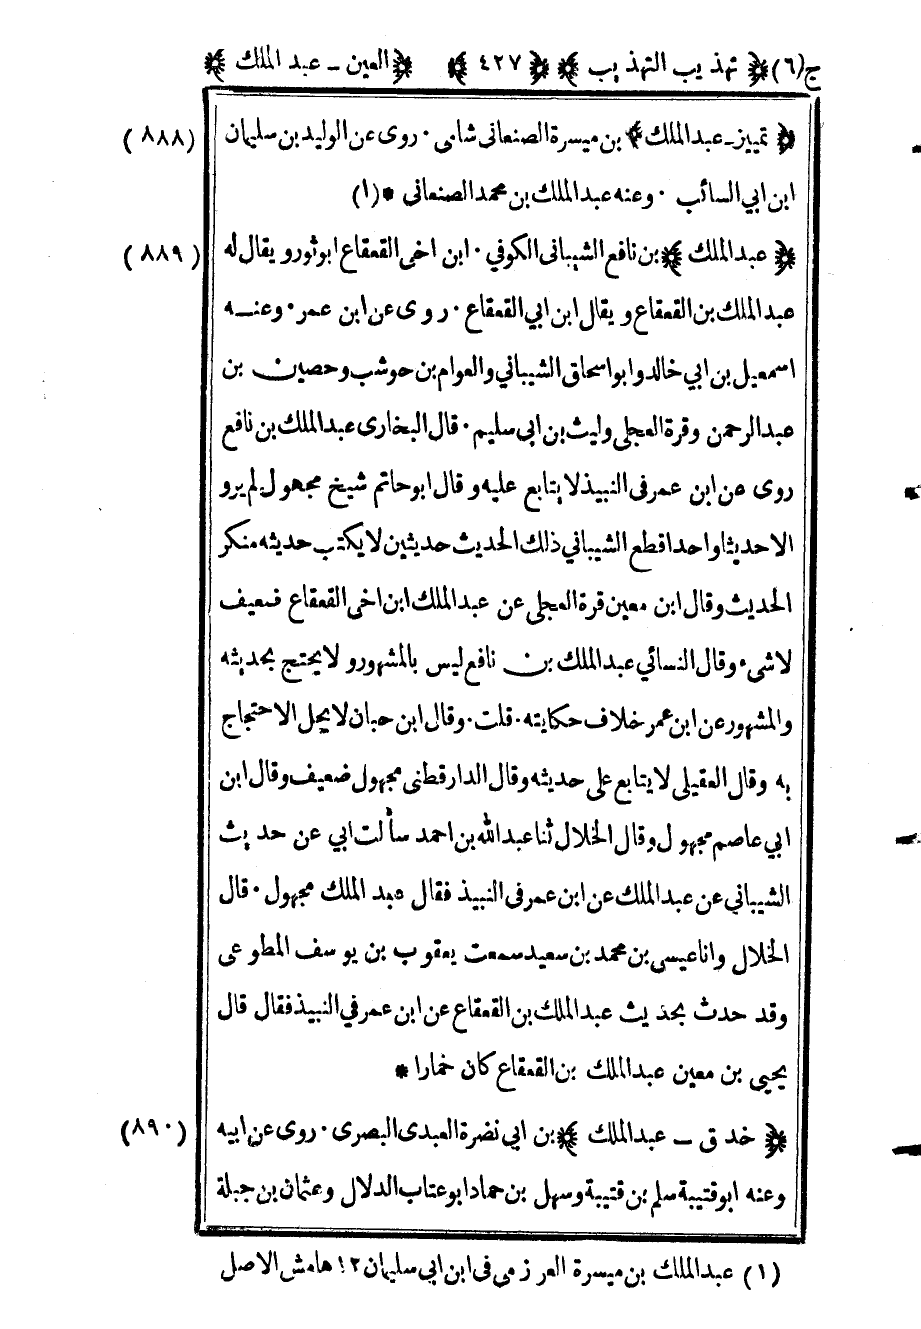 ج(٦) ﴿ تهذيب التهذيب ﴾ ﴿ ٤٢٧ ﴾ ﴿ العين ـ عبد الملك ﴾
﴿ تمييز ـ عبدالملك ﴾ بن ميسرة الصنعانى شامى ٠ روى عن الوليد بن سليمان (٨٨٨)
ابن ابي السائب ٠ وعنه عبدالملك بن محمد الصنعانى * (١)
﴿ عبدالملك ﴾ بن نافع الشيبانى الكوفي ٠ ابن اخى القعقاع ابو ثور و يقال له (٨٨٩)
عبدالملك بن القعقاع و يقال ابن ابي القعقاع ٠ روى عن ابن عمر ٠ وعنه
اسمعيل بن ابي خالد وابو اسحاق الشيباني والعوام بن حوشب وحصين بن
عبدالرحمن وقرة العجلى وليث بن ابى سليم ٠ قال البخارى عبدالملك بن نافع
روى عن ابن عمر فى النبيذ لا يتابع عليه و قال ابو حاتم شيخ مجهول لم يرو
الاحديثا واحدا قطع الشيباني ذلك الحديث حديثين لا يكتب حديثه منكر
الحديث وقال ابن معين قرة العجلى عن عبدالملك ابن اخى القعقاع ضعيف
لاشىء وقال النسائي عبدالملك بن نافع ليس بالمشهور و لا يحتج بحديثه
والمشهور عن ابن عمر خلاف حكايته ٠ قلت ٠ وقال ابن حبان لا يحل الاحتجاج
به وقال العقيلى لا يتابع على حديثه وقال الدارقطنى مجهول ضعيف وقال ابن
ابي عاصم مجهول وقال الخلال ثنا عبدالله بن احمد سألت ابي عن حديث
الشيباني عن عبدالملك عن ابن عمر فى النبيذ فقال عبد الملك مجهول ٠ قال
الخلال وانا عيسى بن محمد بن سعيد سمعت يعقوب بن يوسف المطوعى
وقد حدث بحديث عبدالملك بن القعقاع عن ابن عمر في النبيذ فقال قال
يحيى بن معين عبدالملك بن القعقاع كان خمارا *
﴿ خد ق ـ عبدالملك ﴾ بن ابي نضرة العبدى البصرى ٠ روى عن ابيه (٨٩٠)
وعنه ابو قتيبة سلم بن قتيبة وسهل بن حماد ابو عتاب الدلال وعثمان بن جبلة
(١) عبدالملك بن ميسرة العرزمى فى ابن ابى سليمان ١٢ هامش الاصل